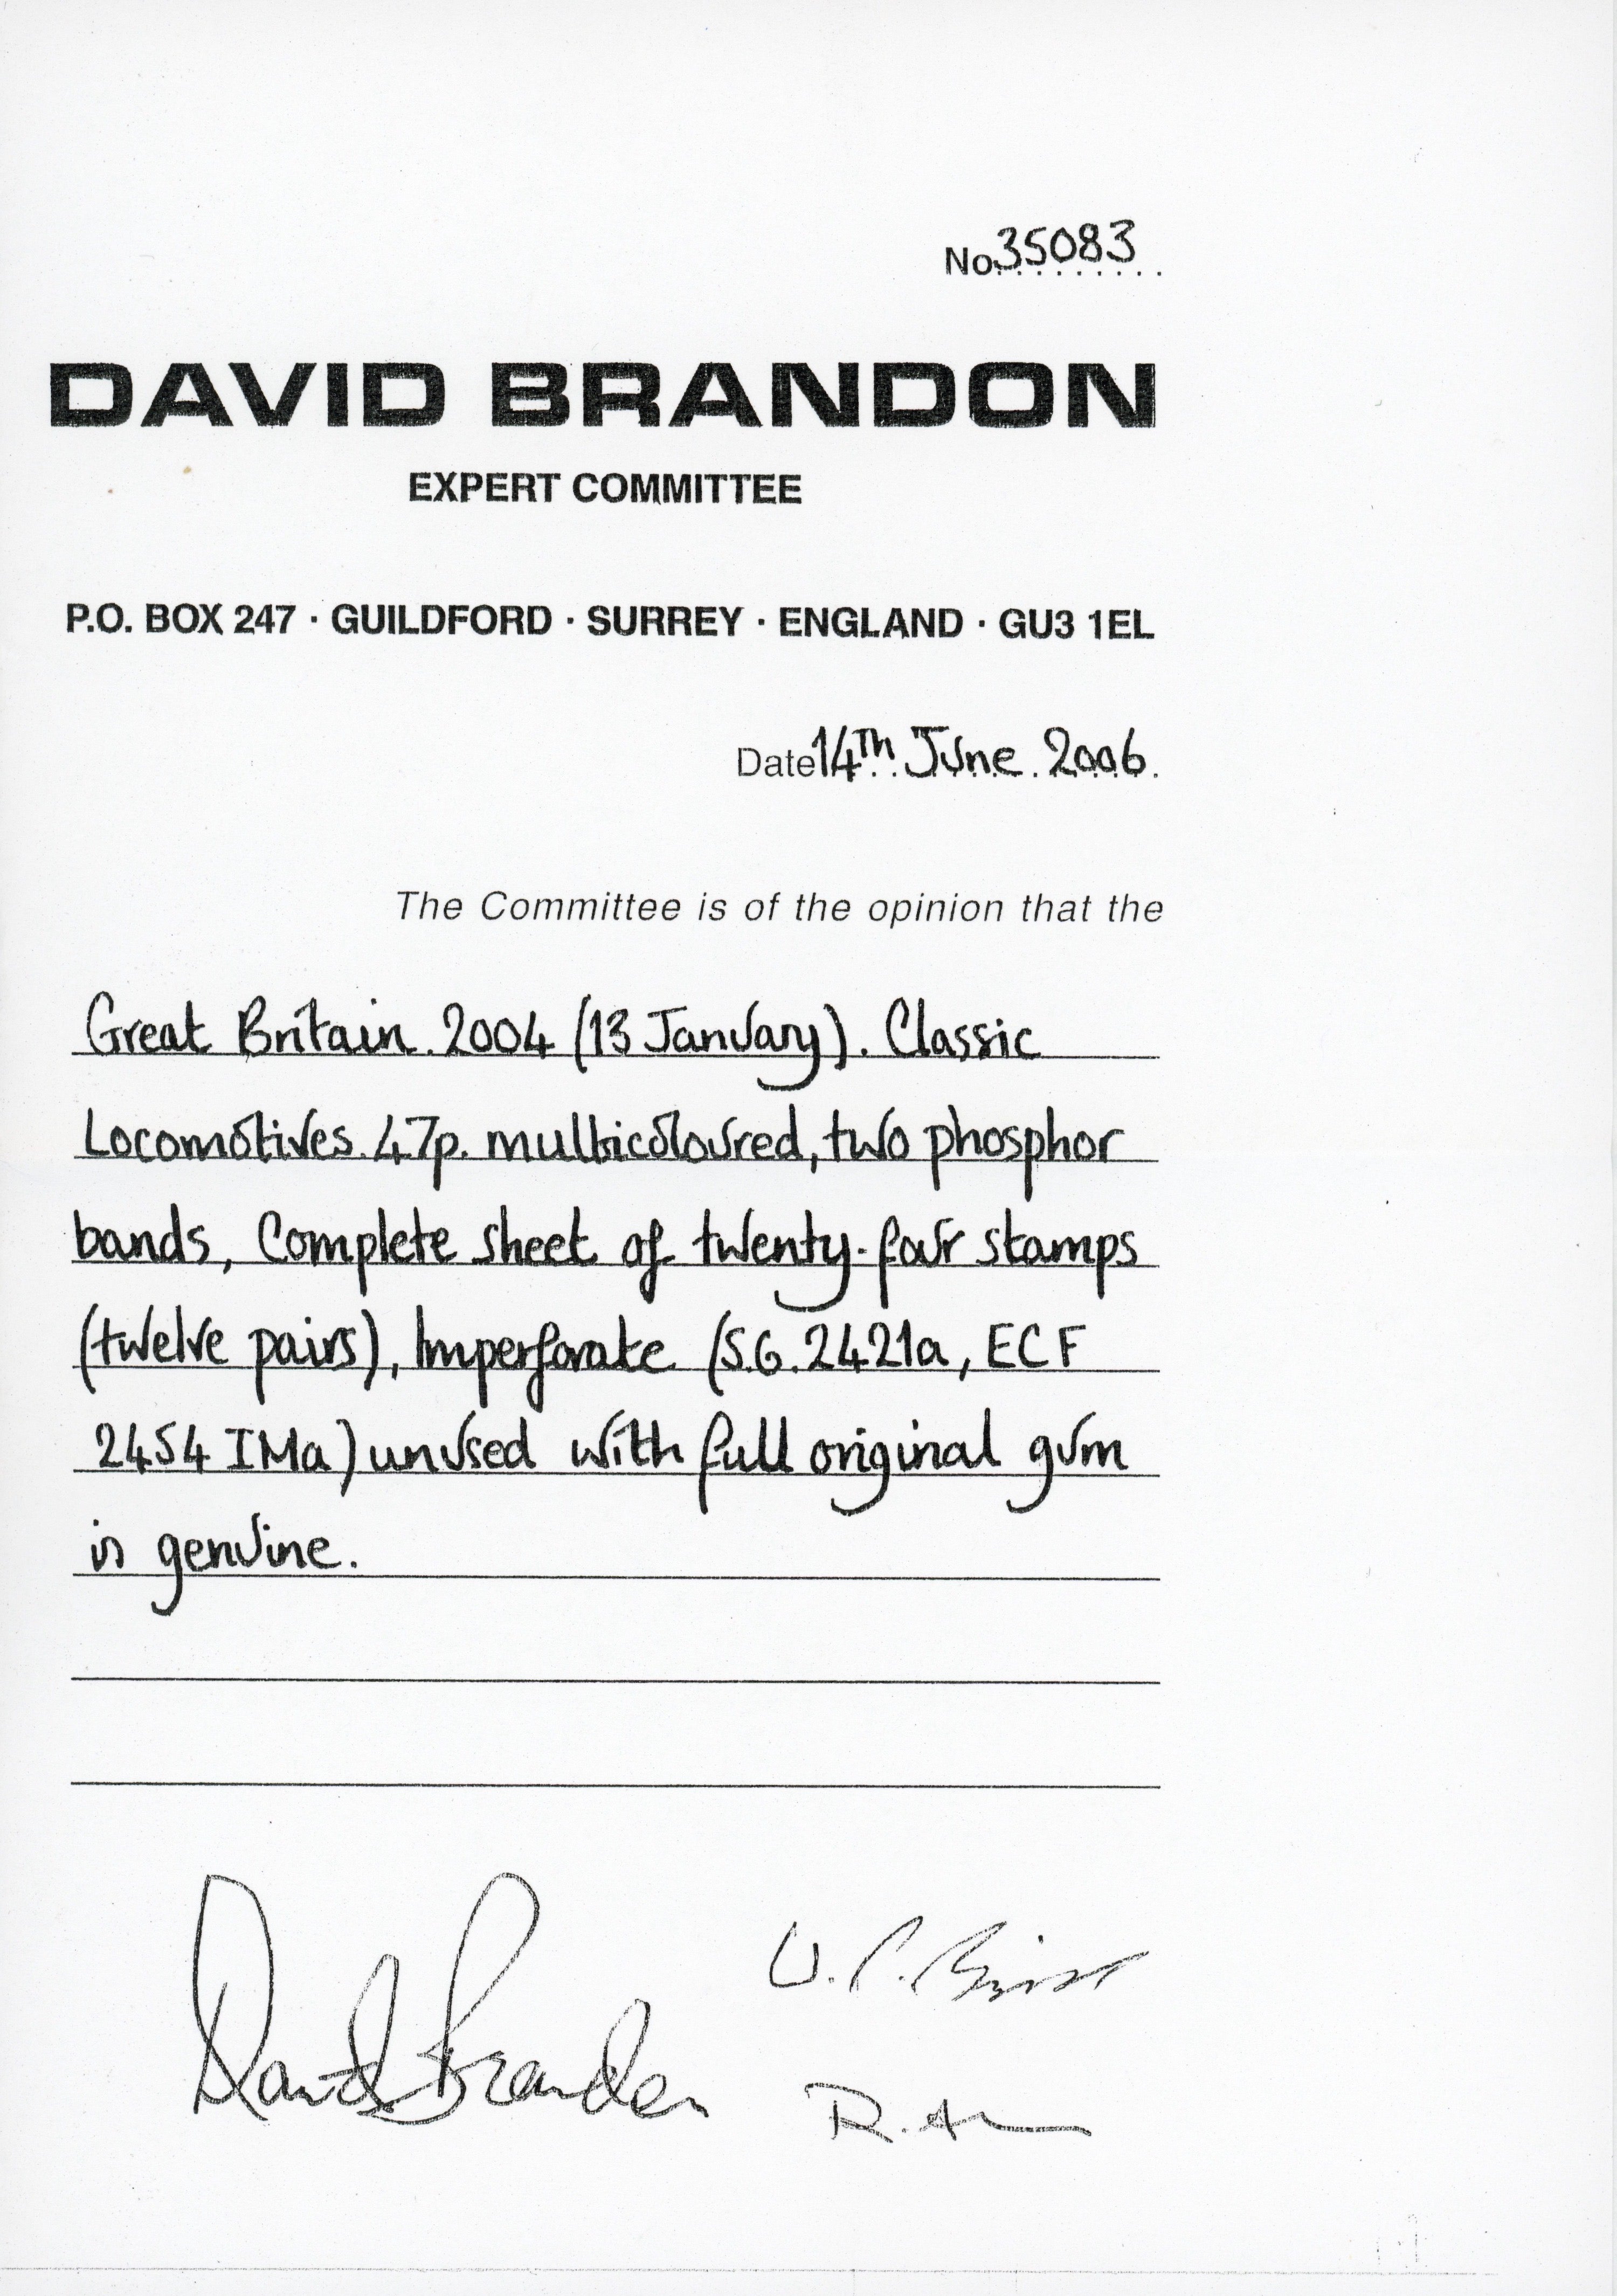 No 35083
DAVID BRANDON
EXPERT COMMITTEE
P.O. BOX 247 · GUILDFORD · SURREY · ENGLAND · GU3 1EL
Date 14Th June 2006.
The Committee is of the opinion that the
Great Britain. 2004 (13 January). Classic
Locomotives. 47p. multicoloured, two phosphor
bands, Complete sheet of twenty-four stamps
(twelve pairs), Imperforate (S.G. 2421a, ECF
2454 IMa) unused with full original gum
is genuine.
David Brandon